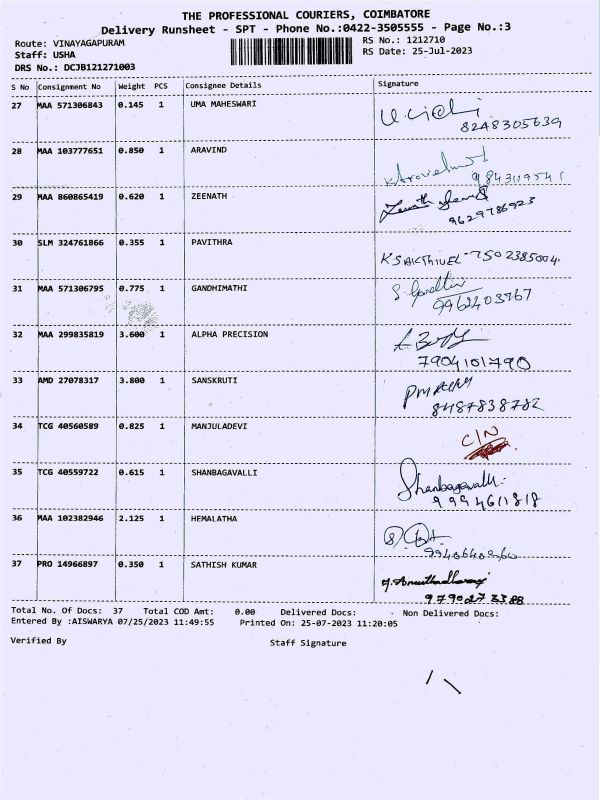 THE PROFESSIONAL COURIERS, COIMBATORE
Delivery Runsheet - SPT - Phone No.:0422-3505555 - Page No.:3
Route: VINAYAGAPURAM
RS No.: 1212710
Staff: USHA
RS Date: 25-Jul-2023
DRS No.: DCJB121271003
S No Consignment No Weight PCS Consignee Details Signature
27 MAA 571306843 0.145 1 UMA MAHESWARI
8248305639
28 MAA 103777651 0.850 1 ARAVIND
29 MAA 860865419 0.620 1 ZEENATH
9629786925
30 SLM 324761866 0.355 1 PAVITHRA
K SAKTHIVEL - 7502385004.
31 MAA 571306795 0.775 1 GANDHIMATHI
9962403767
32 MAA 299835819 3.600 1 ALPHA PRECISION
7904101790
33 AMD 27078317 3.800 1 SANSKRUTI
8487838782
34 TCG 40560589 0.825 1 MANJULADEVI
C/N
35 TCG 40559722 0.615 1 SHANBAGAVALLI
Shanbagavalli
9994611818
36 MAA 102382946 2.125 1 HEMALATHA
37 PRO 14966897 0.350 1 SATHISH KUMAR
9790273388
Total No. Of Docs: 37 Total COD Amt: 0.00 Delivered Docs: Non Delivered Docs:
Entered By :AISWARYA 07/25/2023 11:49:55 Printed On: 25-07-2023 11:20:05
Verified By Staff Signature